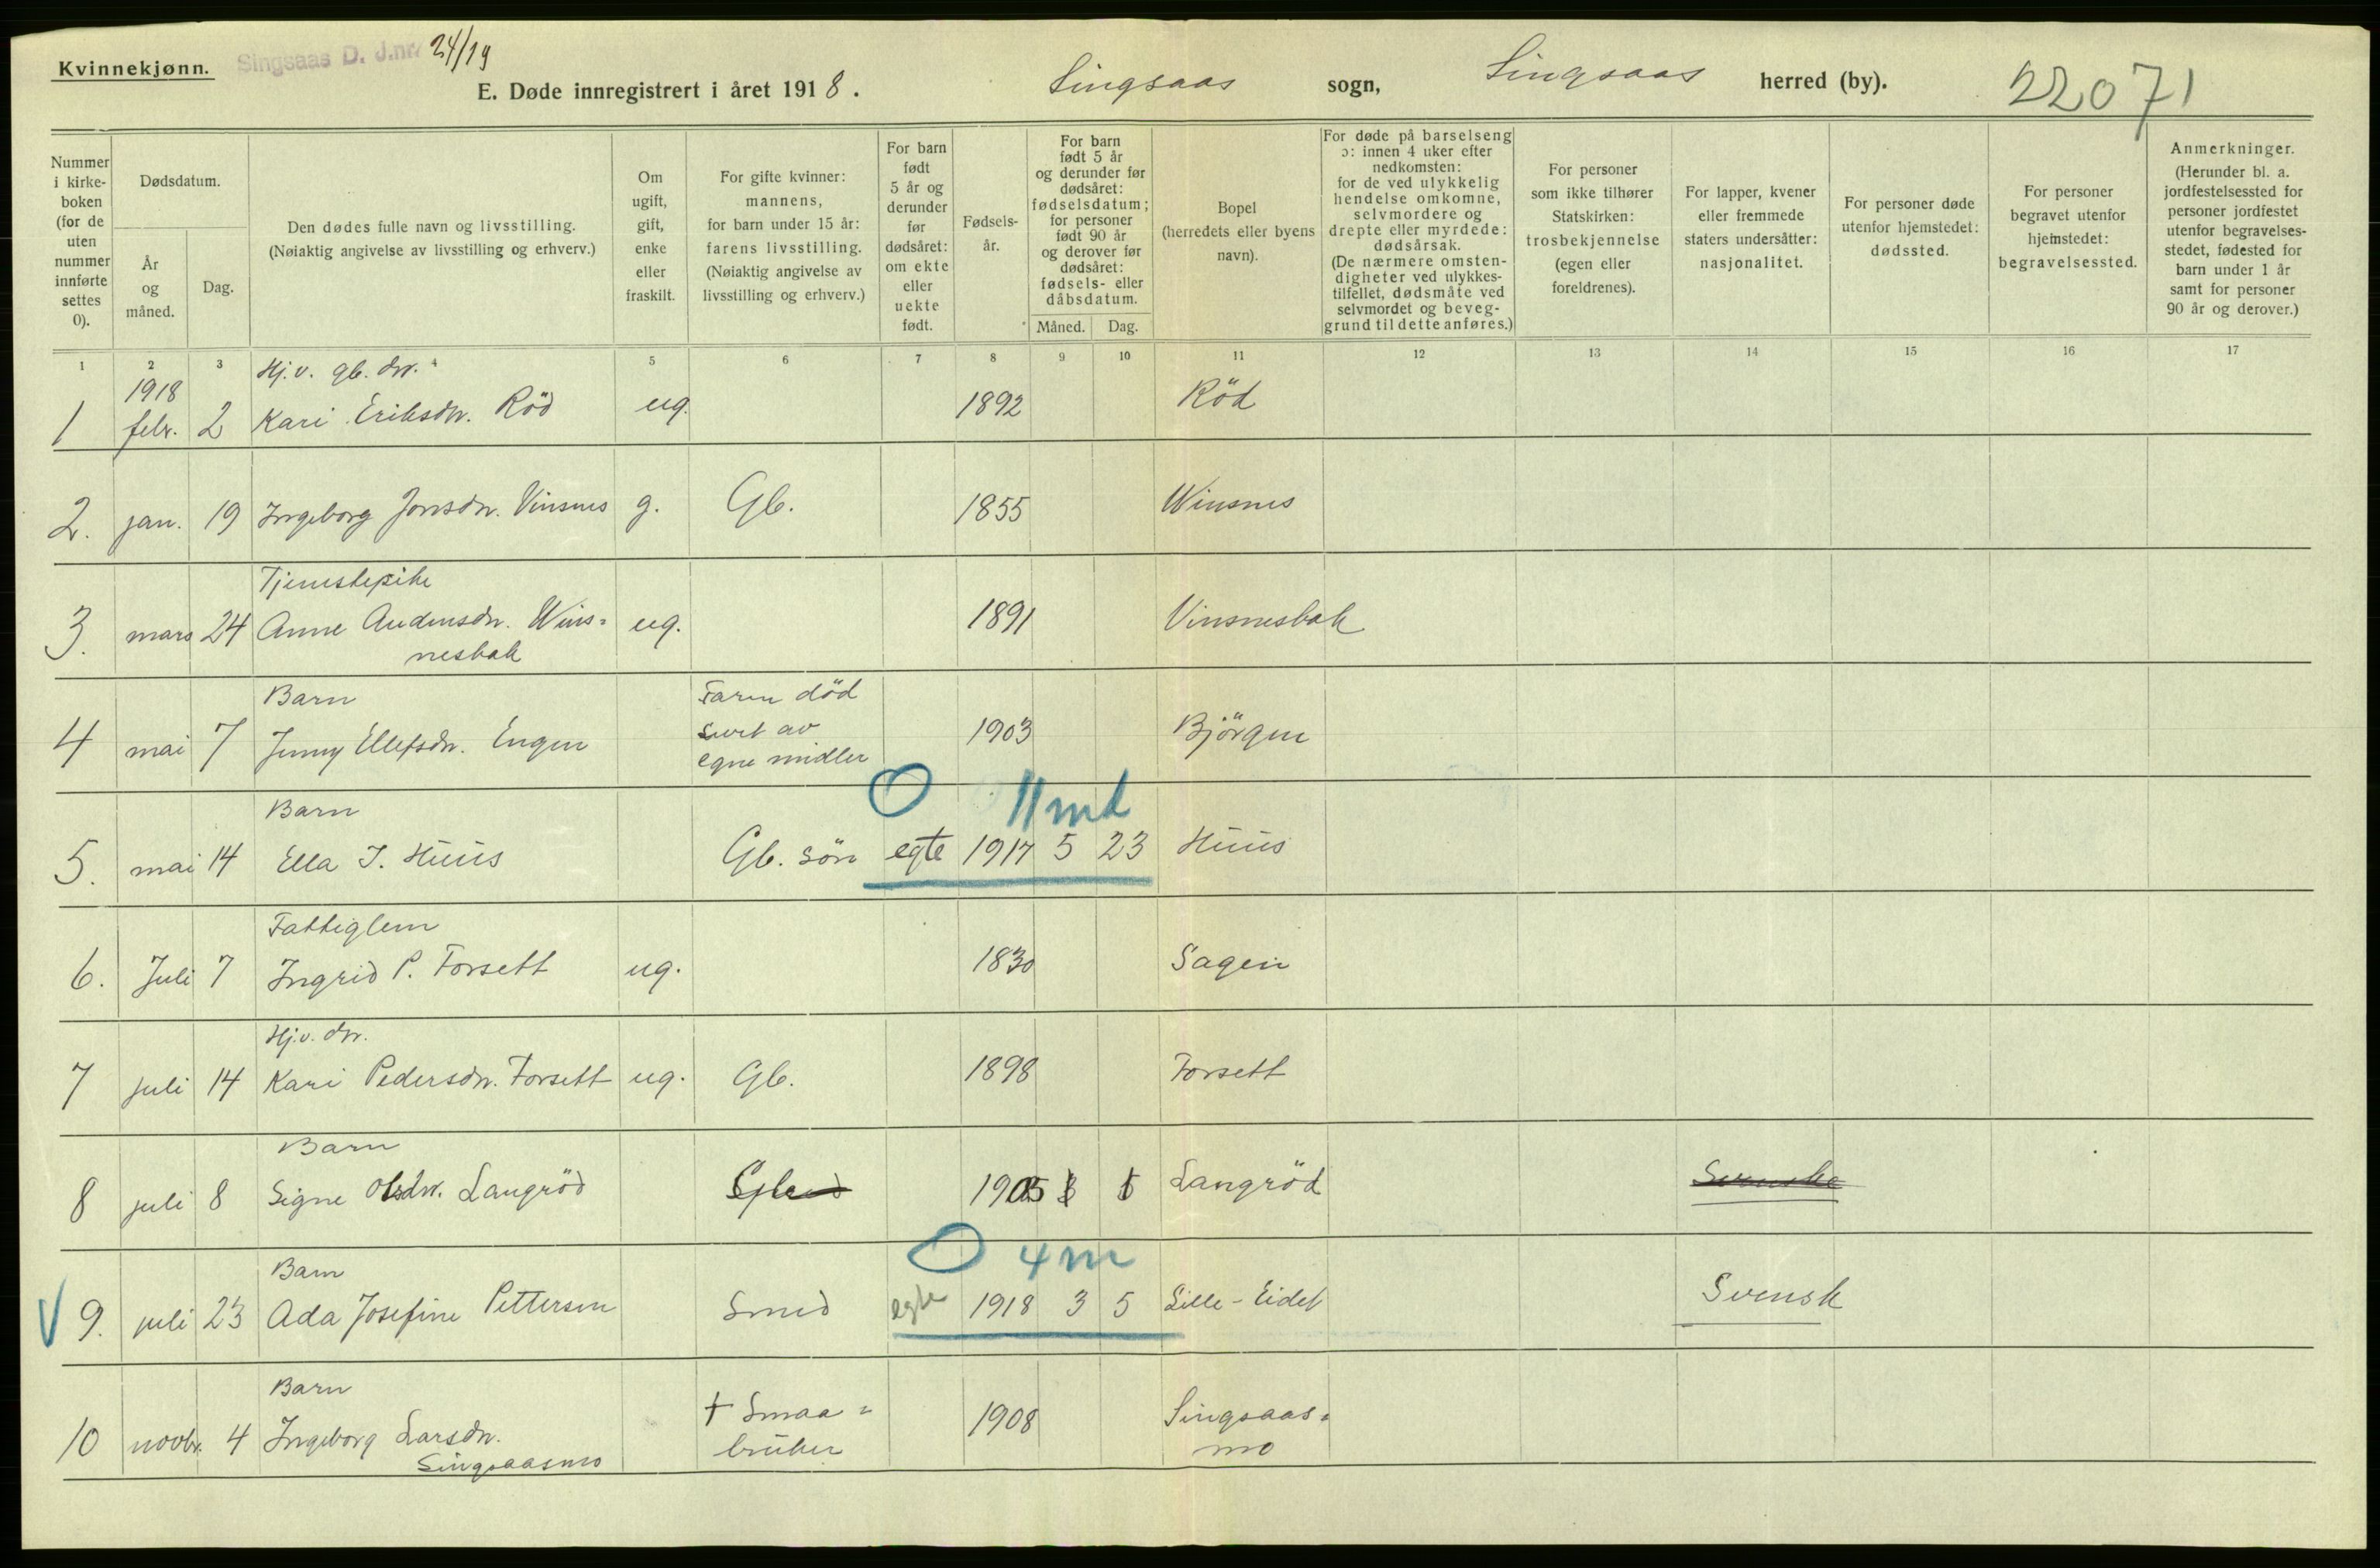 Kvinnekjønn. Singsaas D. J.nr. 24/19
E. Døde innregistrert i året 1918. Singsaas sogn, Singsaas herred (by). 22071
Nummer i kirkeboken (for de uten nummer innførte settes 0).
Dødsdatum.
År og måned.
Dag.
Den dødes fulle navn og livsstilling.
(Nøiaktig angivelse av livsstilling og erhverv.)
Om ugift, gift, enke eller fraskilt.
For gifte kvinner: mannens, for barn under 15 år: farens livsstilling. (Nøiaktig angivelse av livsstilling og erhverv.)
For barn født 5 år og derunder før dødsåret: om ekte eller uekte født.
Fødselsår.
For barn født 5 år og derunder før dødsåret: fødselsdatum; for personer født 90 år og derover før dødsåret: fødsels- eller dåbsdatum.
Måned. Dag.
Bopel (herredets eller byens navn).
For døde på barselseng ɔ: innen 4 uker efter nedkomsten: for de ved ulykkelig hendelse omkomne, selvmordere og drepte eller myrdede: dødsårsak. (De nærmere omstendigheter ved ulykkestilfellet, dødsmåte ved selvmordet og beveggrund til dette anføres.)
For personer som ikke tilhører Statskirken: trosbekjennelse (egen eller foreldrenes).
For lapper, kvener eller fremmede staters undersåtter: nasjonalitet.
For personer døde utenfor hjemstedet: dødssted.
For personer begravet utenfor hjemstedet: begravelsessted.
Anmerkninger. (Herunder bl. a. jordfestelsessted for personer jordfestet utenfor begravelsesstedet, fødested for barn under 1 år samt for personer 90 år og derover.)
1 2 3 4 5 6 7 8 9 10 11 12 13 14 15 16 17
1918 Hj.v. gb. dtr.
1 febr. 2 Kari Eriksdtr. Röd ug. 1892 Röd
2. jan. 19 Ingeborg Jonsdtr. Vinsnes g. Gb. 1855 Winsnes
Tjenestepike
3. mars 24 Anne Andersdtr. Wins= ug. 1891 Vinsnesbak
nesbak
Barn Faren död
4 mai 7 Jenny Ellefsdtr. Engen Levet av 1903 Björgen
egne midler
O 11 md
Barn
5. mai 14 Ella J. Huus Gb. sön egte 1917 5 23 Huus
Fattiglem
6. Juli 7 Ingrid P. Forsett ug. 1830 Sagen
Hj.v. dtr.
7 juli 14 Kari Pedersdtr. Forsett ug. Gb. 1898 Forsett
Barn
8 juli 8 Signe Olsdtr. Langröd 1905 Langröd Svenske
O 4 m
Barn
V 9. juli 23 Ada Josefine Pettersen Smed egte 1918 3 5 Lille-Eidet Svensk
Barn
10 novbr. 4 Ingeborg Larsdtr. + Smaa= 1908 Singsaas=
Singsaasmo bruker mo